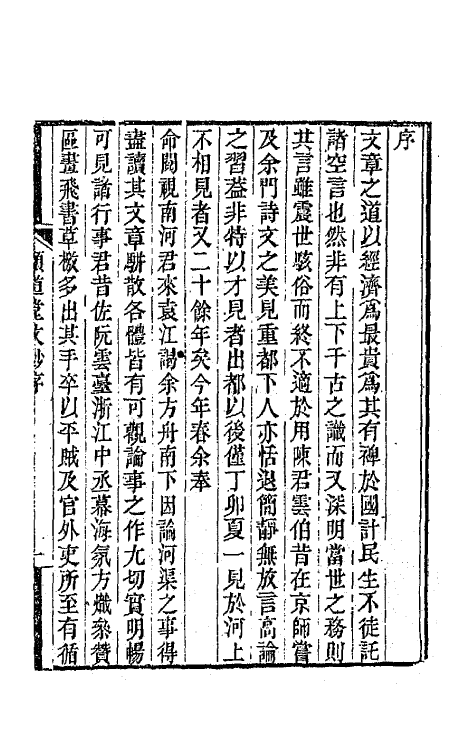 序
文章之道以經濟爲最貴爲其有裨於國計民生不徒託
諸空言也然非有上下千古之識而又深明當世之務則
其言雖震世駭俗而終不適於用陳君雲伯昔在京師嘗
及余門詩文之美見重都下人亦恬退簡靜無放言高論
之習葢非特以才見者出都以後僅丁卯夏一見於河上
不相見者又二十餘年矣今年春余奉
命閱視南河君來袁江謁余方舟南下因論河渠之事得
盡讀其文章駢散各體皆有可觀論事之作尢切實明暢
可見諸行事君昔佐阮雲臺浙江中丞幕海氛方熾參贊
區畫飛書草檄多出其手卒以平賊及官外吏所至有循
頤道堂文鈔序
一